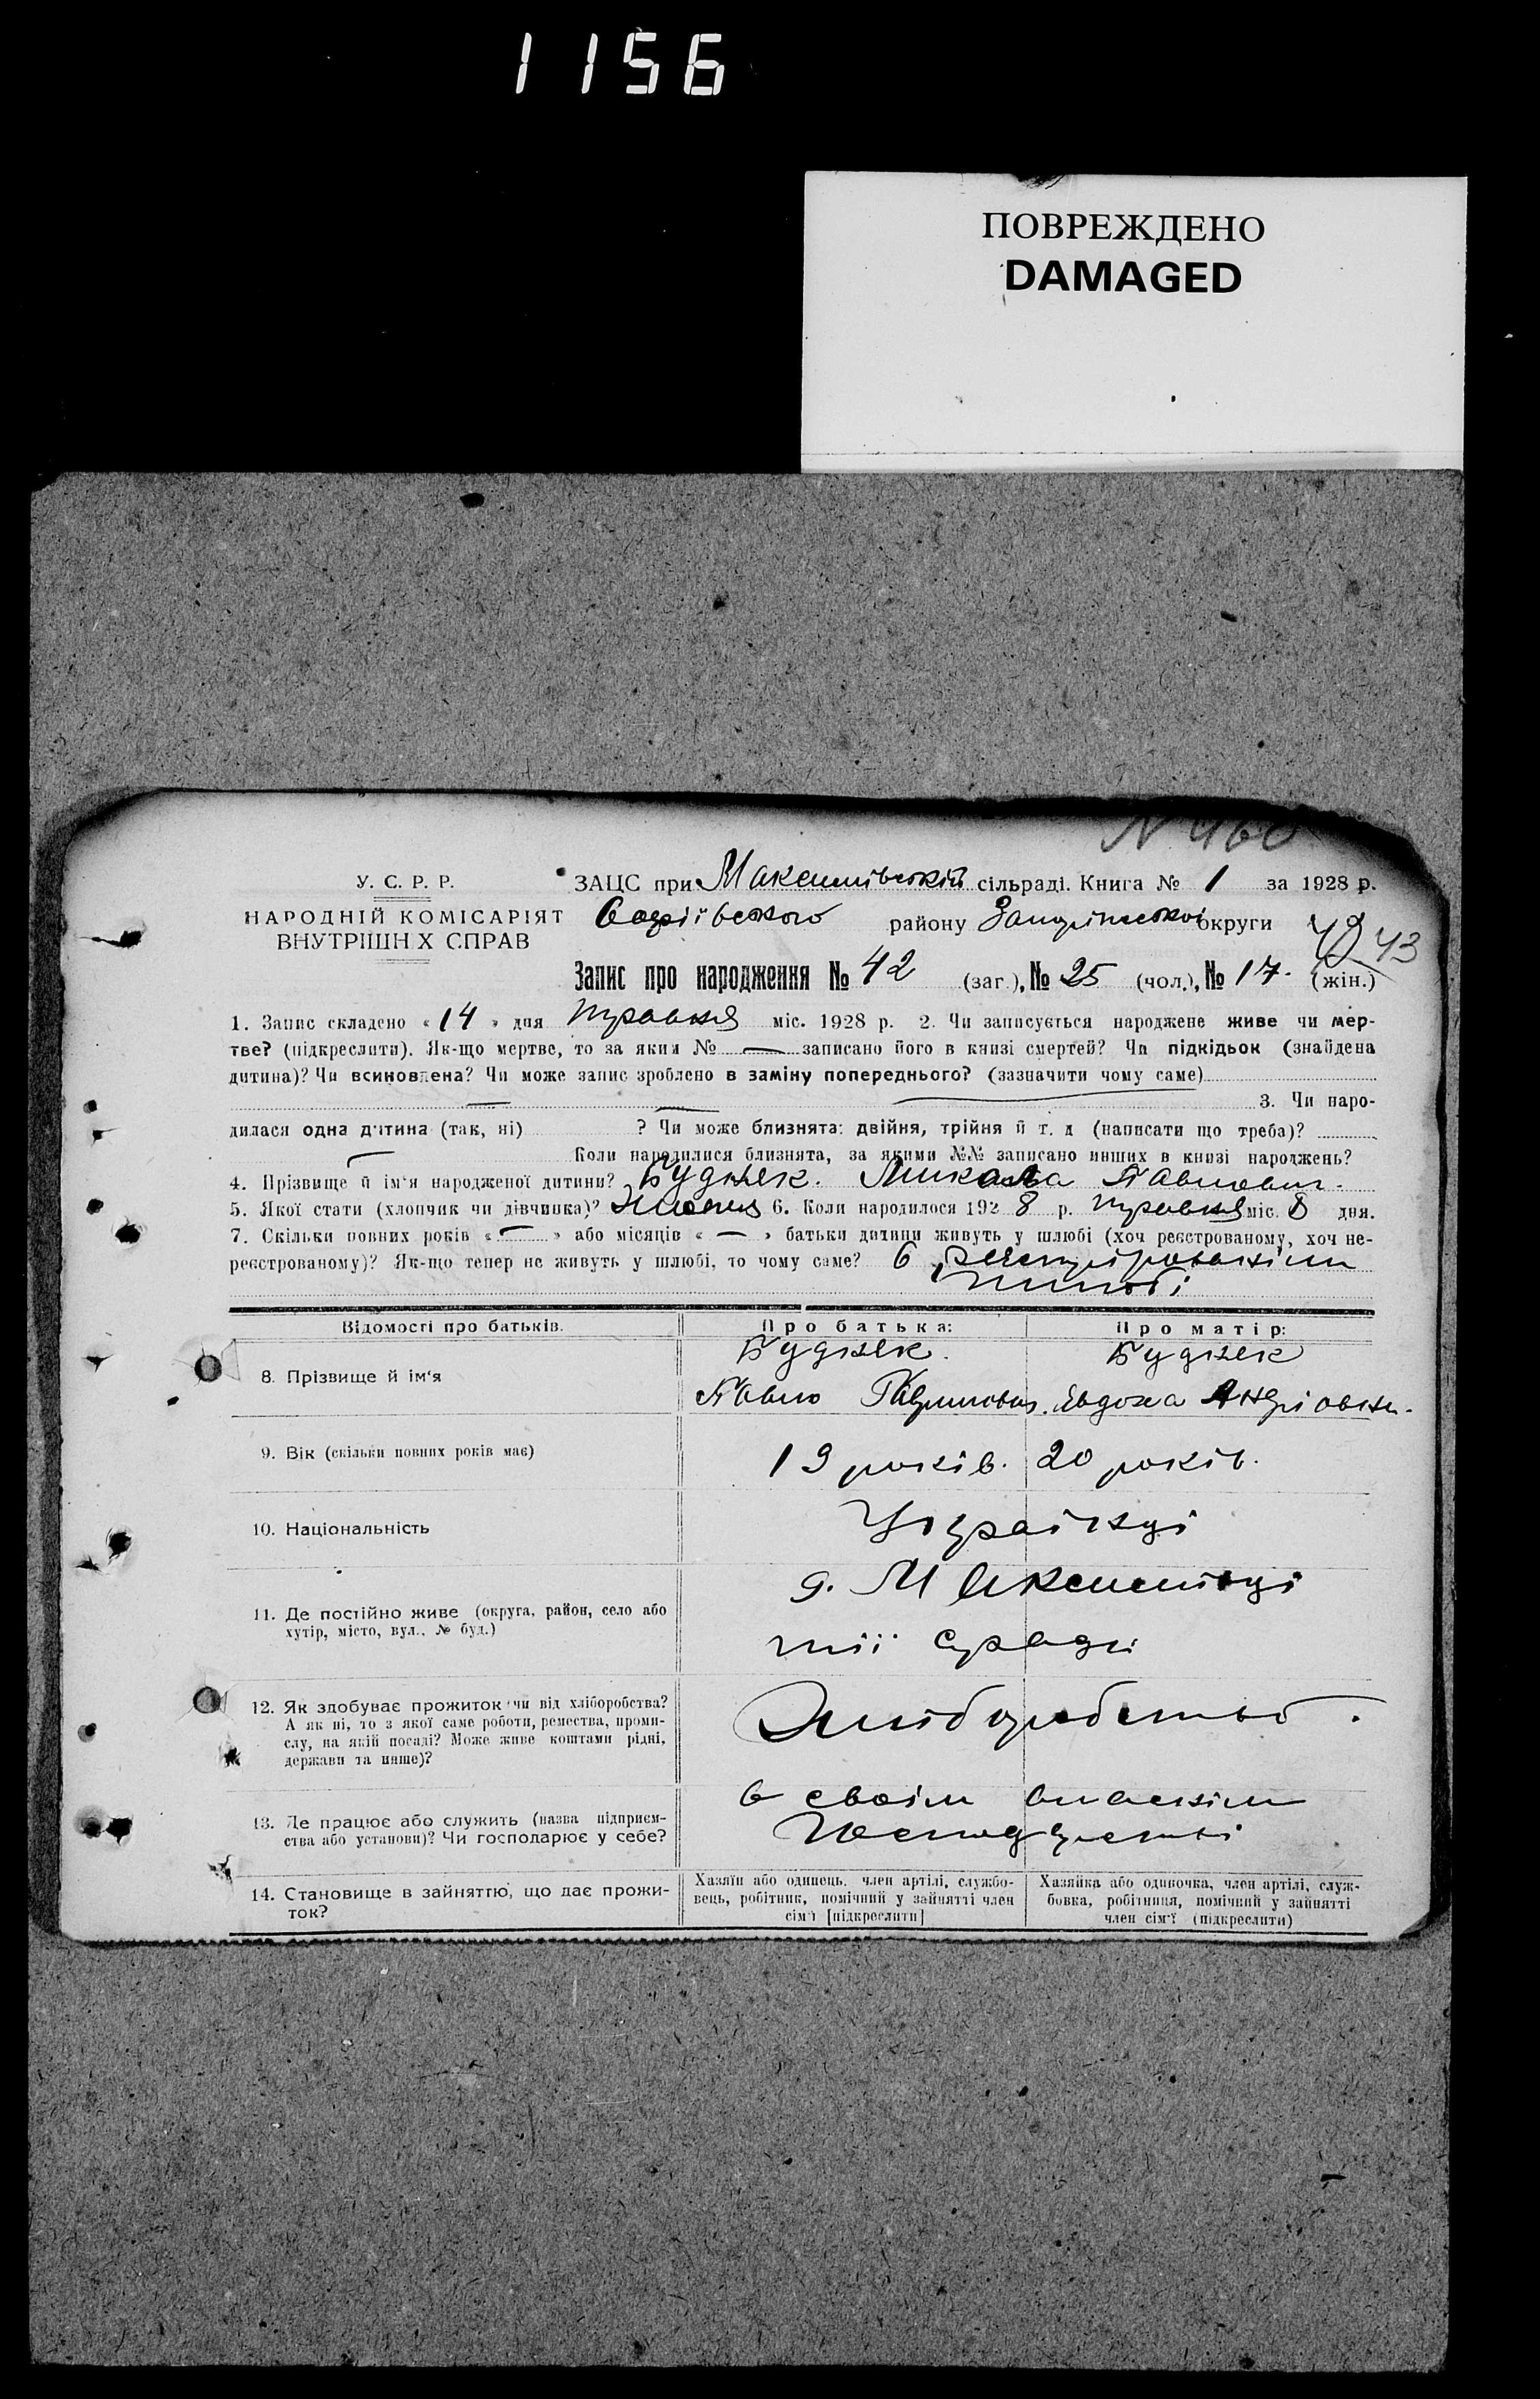 1156
ПОВРЕЖДЕНО
DAMAGED
N 460
У. С. Р. Р.
НАРОДНІЙ КОМІСАРІЯТ
ВНУТРІШН Х СПРАВ
ЗАЦС при Максимівській сільраді. Книга № 1 за 1928 р.
Софіївського району Запоріжської округи
42 43
Запис про народження № 42 (заг.), № 25 (чол.), № 17. (жін.)
1. Запис складено « 14 » дня травня міс. 1928 р. 2. Чи записується народжене живе чи мер-
тве? (підкреслити). Як-що мертве, то за яким № — записано його в книзі смертей? Чи підкідьок (знайдена
дитина)? Чи всиновлена? Чи може запис зроблено в заміну попереднього? (зазначити чому саме)
— — — 3. Чи наро-
дилася одна дитина (так, ні) ? Чи може близнята: двійня, трійня й т. д (написати що треба)?
— Коли народилися близнята, за якими №№ записано инших в книзі народжень?
4. Прізвище й ім'я народженої дитини? Буднек. Микола Павлович.
5. Якої стати (хлопчик чи дівчинка)? 6. Коли народилося 192 8 р. травня міс. 8 дня.
7. Скільки повних років « — » або місяців « — » батьки дитини живуть у шлюбі (хоч реєстрованому, хоч не-
реєстрованому)? Як-що тепер не живуть у шлюбі, то чому саме? В
шлюбі
Відомості про батьків. Про батька: Про матір:
Буднек. Буднек
8. Прізвище й ім'я
Павло Явдоха
9. Вік (скільки повних років має) 19 років. 20 років.
10. Національність Українці
с. Максимівці
11. Де постійно живе (округа, район, село або
хутір, місто, вул., № буд.)
тії сради
12. Як здобуває прожиток чи від хліборобства? Хліборобство.
А як ні, то з якої саме роботи, ремества, проми-
слу, на якій посаді? Може живе коштами рідні,
держави та инше)?
в своїм власнім
13. Де працює або служить (назва підприєм-
ства або установи)? Чи господарює у себе? Господарстві
14. Становище в зайняттю, що дає прожи-
ток?
Хазяїн або одинець, член артілі, службо-
вець, робітник, помічний у зайнятті член
сім'ї [підкреслити]
Хазяйка або одиночка, член артілі, служ-
бовка, робітниця, помічний у зайнятті
член сім'ї (підкреслити)